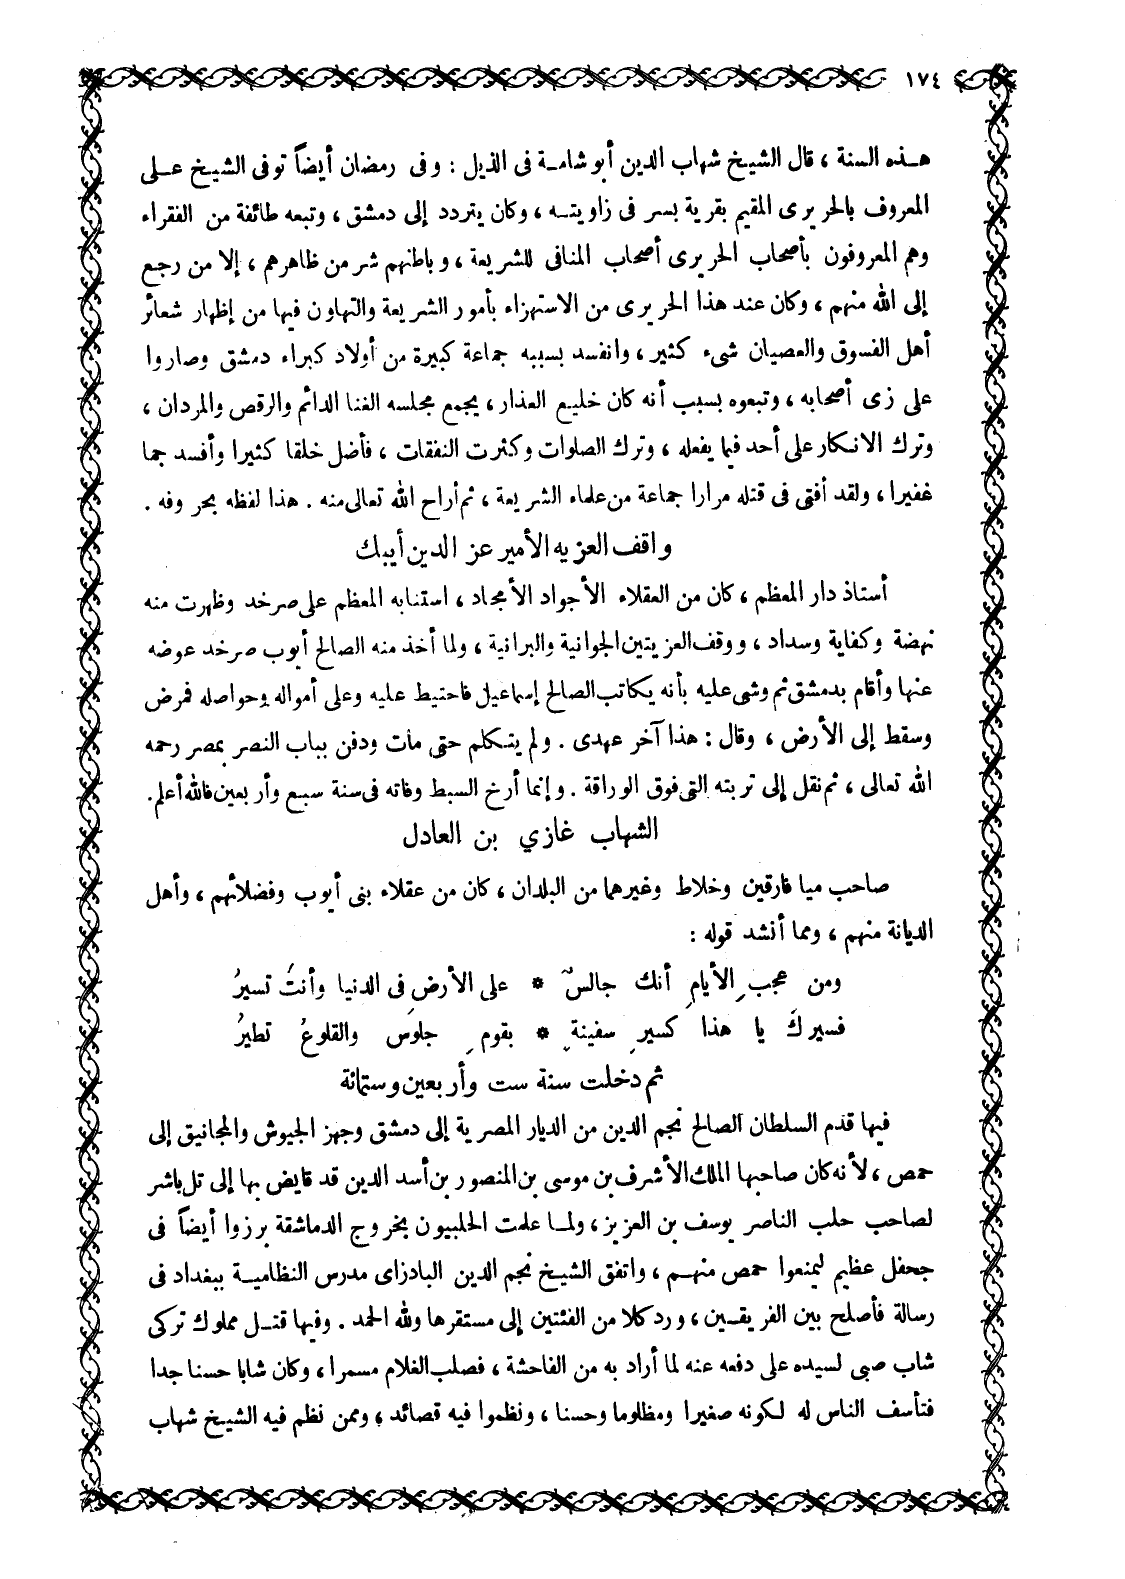 ١٧٤
هـذه السنة ، قال الشيخ شهاب الدين أبو شامـة فى الذيل : وفى رمضان أيضاً توفى الشيخ عـلى
المعروف بالحريرى المقيم بقرية بسر فى زاويتـه ، وكان يتردد إلى دمشق ، وتبعه طائفة من الفقراء
وهم المعروفون بأصحاب الحريرى أصحاب المنافى للشريعة ، وباطنهم شر من ظاهرهم ، إلا من رجع
إلى الله منهم ، وكان عند هذا الحريرى من الاستهزاء بأمور الشريعة والتهاون فيها من إظهار شعائر
أهل الفسوق والعصيان شىء كثير ، وانفسد بسببه جماعة كبيرة من أولاد كبراء دمشق وصاروا
على زى أصحابه ، وتبعوه بسبب أنه كان خليع العذار ، يجمع مجلسه الغنا الدائم والرقص والمردان ،
وترك الانكار على أحد فيما يفعله ، وترك الصلوات وكثرت النفقات ، فأضل خلقا كثيرا وأفسد جما
غفيرا ، ولقد أفتى فى قتله مرارا جماعة من علماء الشريعة ، ثم أراح الله تعالى منه . هذا لفظه بحروفه .
واقف العزيه الأمير عز الدين أيبك
أستاذ دار المعظم ، كان من العقلاء الأجواد الأمجاد ، استنابه المعظم على صرخد وظهرت منه
نهضة وكفاية وسداد ، ووقف العزيتين الجوانية والبرانية ، ولما أخذ منه الصالح أيوب صرخد عوضه
عنها وأقام بدمشق ثم وشى عليه بأنه يكاتب الصالح إسماعيل فاحتيط عليه وعلى أمواله وحواصله فمرض
وسقط إلى الأرض ، وقال : هذا آخر عهدى . ولم يتكلم حتى مات ودفن بباب النصر بمصر رحمه
الله تعالى ، ثم نقل إلى تربته التى فوق الوراقة . وإنما أرخ السبط وفاته فى سنة سبع وأربعين فالله أعلم.
الشهاب غازي بن العادل
صاحب ميا فارقين وخلاط وغيرهما من البلدان ، كان من عقلاء بنى أيوب وفضلائهم ، وأهل
الديانة منهم ، ومما أنشد قوله :
ومن عجبِ الأيامِ أنك جالسٌ * على الأرضِ فى الدنيا وأنتَ تسيرُ
فسيركَ يا هذا كسيرِ سفينةٍ * بقومٍ جلوسٍ والقلوعُ تطيرُ
ثم دخلت سنة ست وأربعين وستمائة
فيها قدم السلطان الصالح نجم الدين من الديار المصرية إلى دمشق وجهز الجيوش والمجانيق إلى
حمص ، لأنه كان صاحبها الملك الأشرف بن موسى بن المنصور بن أسد الدين قد قايض بها إلى تل باشر
لصاحب حلب الناصر يوسف بن العزيز ، ولمـا علمت الحلبيون بخروج الدماشقة برزوا أيضاً فى
جحفل عظيم ليمنعوا حمص منهـم ، واتفق الشيخ نجم الدين البادزاى مدرس النظاميـة ببغداد فى
رسالة فأصلح بين الفريقـين ، ورد كلا من الفئتين إلى مستقرها ولله الحمد . وفيها قتـل مملوك تركى
شاب صبى لسيده على دفعه عنه لما أراد به من الفاحشة ، فصلب الغلام مسمرا ، وكان شابا حسنا جدا
فتأسف الناس له لكونه صغيرا ومظلوما وحسنا ، ونظموا فيه قصائد ، وممن نظم فيه الشيخ شهاب